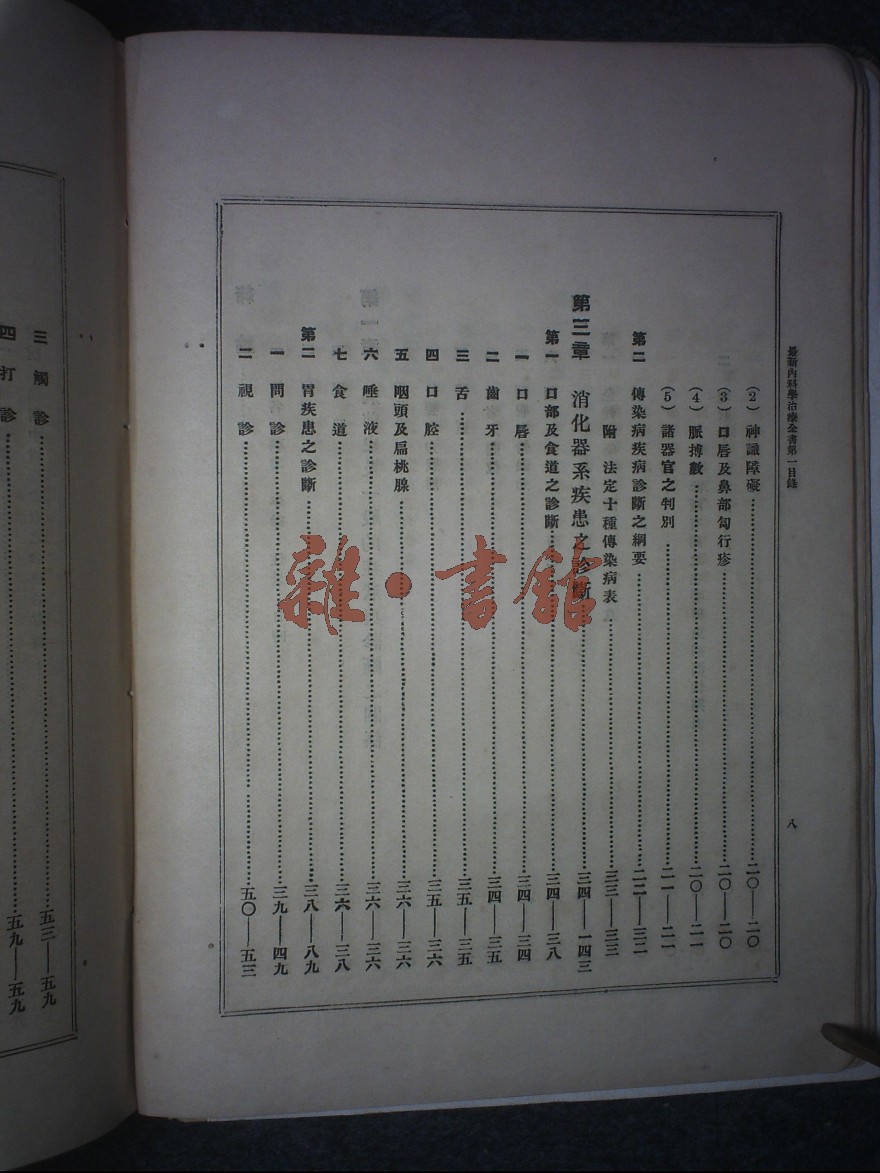 最新內科學治療全書第一目錄
八
(2) 神識障礙……二〇——二〇
(3) 口唇及鼻部匐行疹……二〇——二〇
(4) 脈搏數……二〇——二一
(5) 諸器官之判別……二一——二一
第二 傳染病疾病診斷之綱要……二二——三二
附 法定十種傳染病表……三三——三三
第三章 消化器系疾患之診斷……三四——一四三
第一 口部及食道之診斷……三四——三八
一 口唇……三四——三四
二 齒牙……三四——三五
三 舌……三五——三五
四 口腔……三五——三六
五 咽頭及扁桃腺……三六——三六
六 唾液……三六——三六
七 食道……三六——三八
第二 胃疾患之診斷……三八——八九
一 問診……三九——四九
二 視診……五〇——五三
三 觸診……五三——五九
四 打診……五九——五九
雜·書館